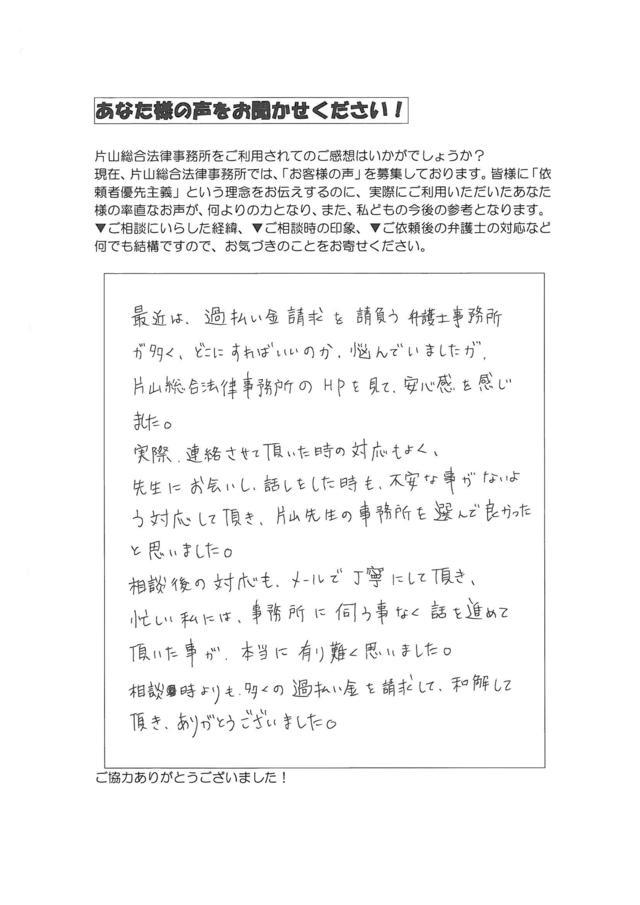 あなた様の声をお聞かせください！
片山総合法律事務所をご利用されてのご感想はいかがでしょうか？
現在、片山総合法律事務所では、「お客様の声」を募集しております。皆様に「依
頼者優先主義」という理念をお伝えするのに、実際にご利用いただいたあなた
様の率直なお声が、何よりの力となり、また、私どもの今後の参考となります。
▼ご相談にいらした経緯、▼ご相談時の印象、▼ご依頼後の弁護士の対応など
何でも結構ですので、お気づきのことをお寄せください。
最近は、過払い金請求を請負う弁護士事務所
が多く、どこにすればいいのか、悩んでいましたが、
片山総合法律事務所のHPを見て、安心感を感じ
ました。
実際、連絡させて頂いた時の対応もよく、
先生にお会いし、話しをした時も、不安な事がないよ
う対応して頂き、片山先生の事務所を選んで良かった
と思いました。
相談後の対応も、メールで丁寧にして頂き、
忙しい私には、事務所に伺う事なく話を進めて
頂いた事が、本当に有り難く思いました。
相談時よりも、多くの過払い金を請求して、和解して
頂き、ありがとうございました。
ご協力ありがとうございました！